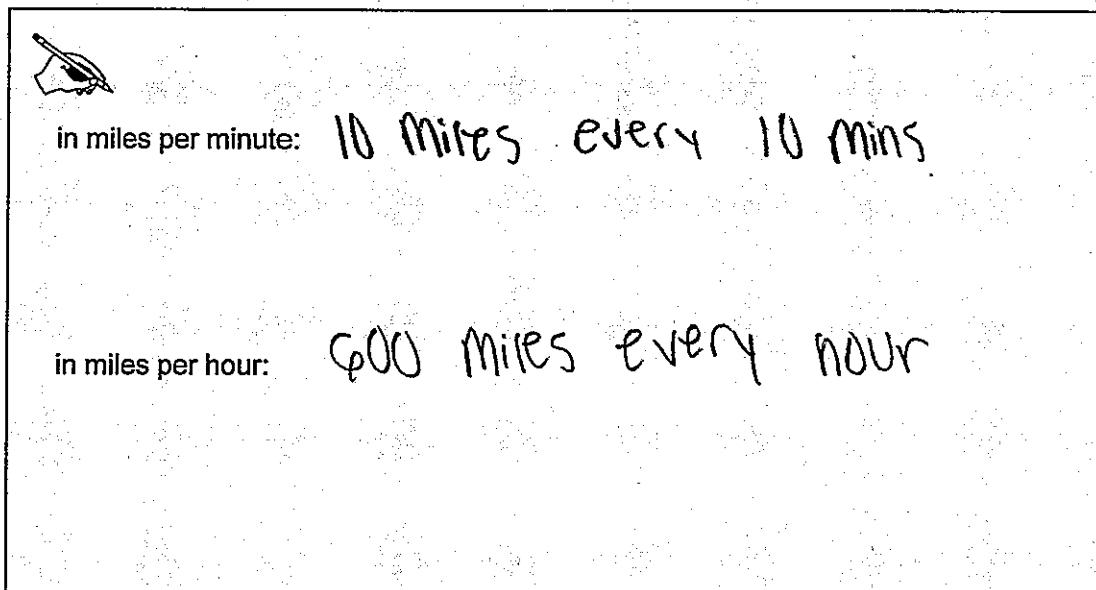 in miles per minute: 10 miles every 10 mins.
in miles per hour: 600 miles every hour